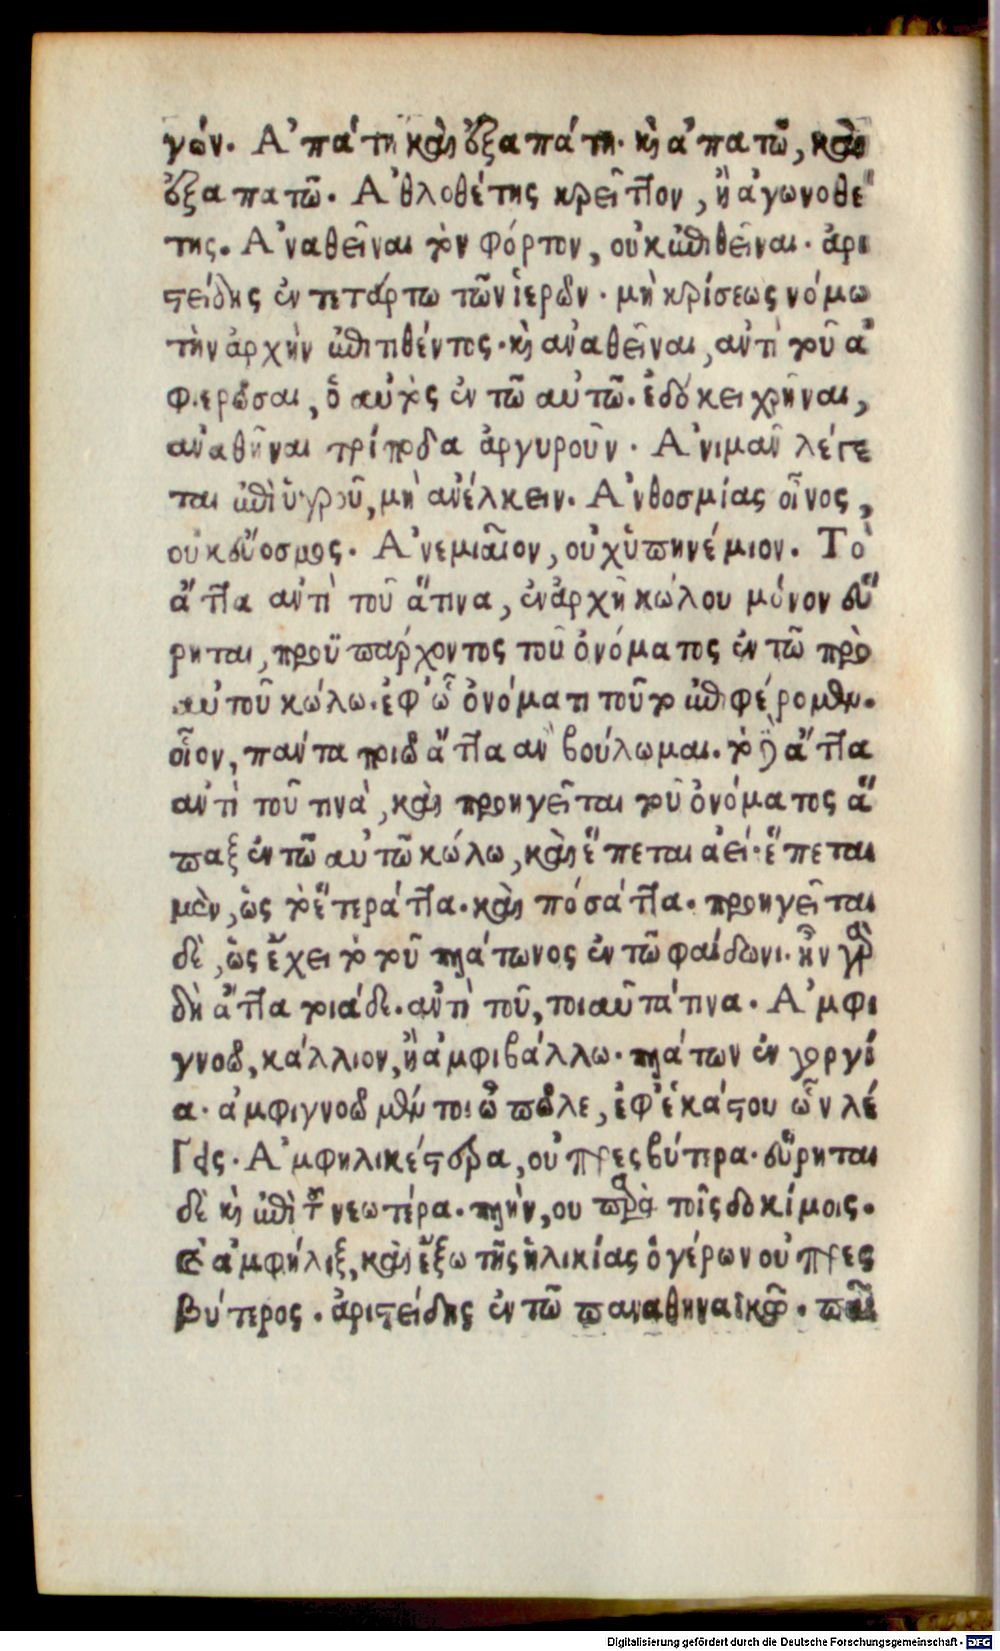 γόν. Ἀπάτη καὶ ἐξαπάτη. καὶ ἀπατῶ, καὶ
ἐξαπατῶ. Ἀθλοθέτης κρεῖττον, ἢ ἀγωνοθέ
της. Ἀναθεῖναι τὸν φόρτον, οὐκ ἐπιθεῖναι. ἀρι
στείδης ἐν τετάρτω τῶν ἱερῶν. μὴ κρίσεως νόμω
τὴν ἀρχὴν ἐπιτιθέντος. καὶ ἀναθεῖναι, ἀντὶ τοῦ ἀ
φιερῶσαι, ὁ αὐτὸς ἐν τῶ αὐτῶ. ἐδόκει χρῆναι,
ἀναθῆναι τρίποδα ἀργυροῦν. Ἀνιμᾶν λέγε
ται ἐπὶ ὑγροῦ, μὴ ἀνέλκειν. Ἀνθοσμίας οἶνος,
οὐκ εὔοσμος. Ἀνεμιαῖον, οὐχ ὑπηνέμιον. Τὸ
ἅττα ἀντὶ τοῦ ἅτινα, ἐν ἀρχῆ κώλου μόνον εὕ
ρηται, προϋπάρχοντος τοῦ ὀνόματος ἐν τῶ πρὸ
αὐτοῦ κώλω. ἐφ' ὧ ὀνόματι τοῦτο ἐπιφέρομεν.
οἷον, πάντα ποιῶ ἅττα ἂν βούλωμαι. τὸ δὲ ἄττα
ἀντὶ τοῦ τινὰ, καὶ προηγεῖται τοῦ ὀνόματος ἅ
παξ ἐν τῶ αὐτῶ κώλω, καὶ ἕπεται ἀεί. ἕπεται
μὲν, ὡς τὸ ἕτερα ἄττα. καὶ πόσα ἄττα. προηγεῖται
δὲ, ὡς ἔχει τὸ τοῦ πλάτωνος ἐν τῶ φαίδωνι. ἦν γὰρ
δὴ ἄττα τοιάδε. ἀντὶ τοῦ, τοιαῦτά τινα. Ἀμφι
γνοῶ, κάλλιον, ἢ ἀμφιβάλλω. πλάτων ἐν γοργί
α. ἀμφιγνοῶ μέντοι ὦ πῶλε, ἐφ' ἑκάστου ὧν λέ
γεις. Ἀμφηλικέστερα, οὐ πρεσβύτερα. εὕρηται
δὲ καὶ ἐπὶ τὴν νεωτέρα. πλὴν, οὐ παρὰ τοῖς δοκίμοις.
καὶ ἀμφήλιξ, καὶ ἔξω τῆς ἡλικίας ὁ γέρων οὐ πρεσ
βύτερος. ἀριστείδης ἐν τῶ παναθηναϊκῶ.
Digitalisierung gefördert durch die Deutsche Forschungsgemeinschaft - DFG